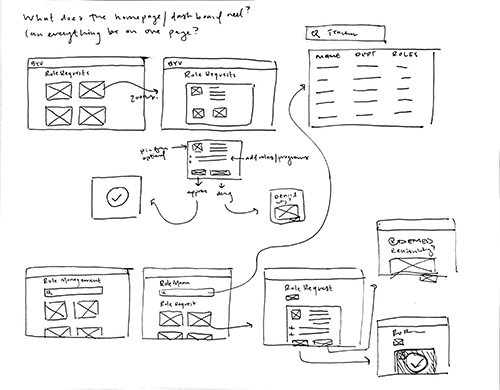 What does the homepage/dashboard need?
Can everything be on one page?
BYU
Role Requests
zooms
BYU
Role Requests
Tracker
NAME DEPT ROLES
optional
add roles/programs
approve
deny
Denied
why?
Role Management
Role Mana
Role Request
Role Request
DENIED